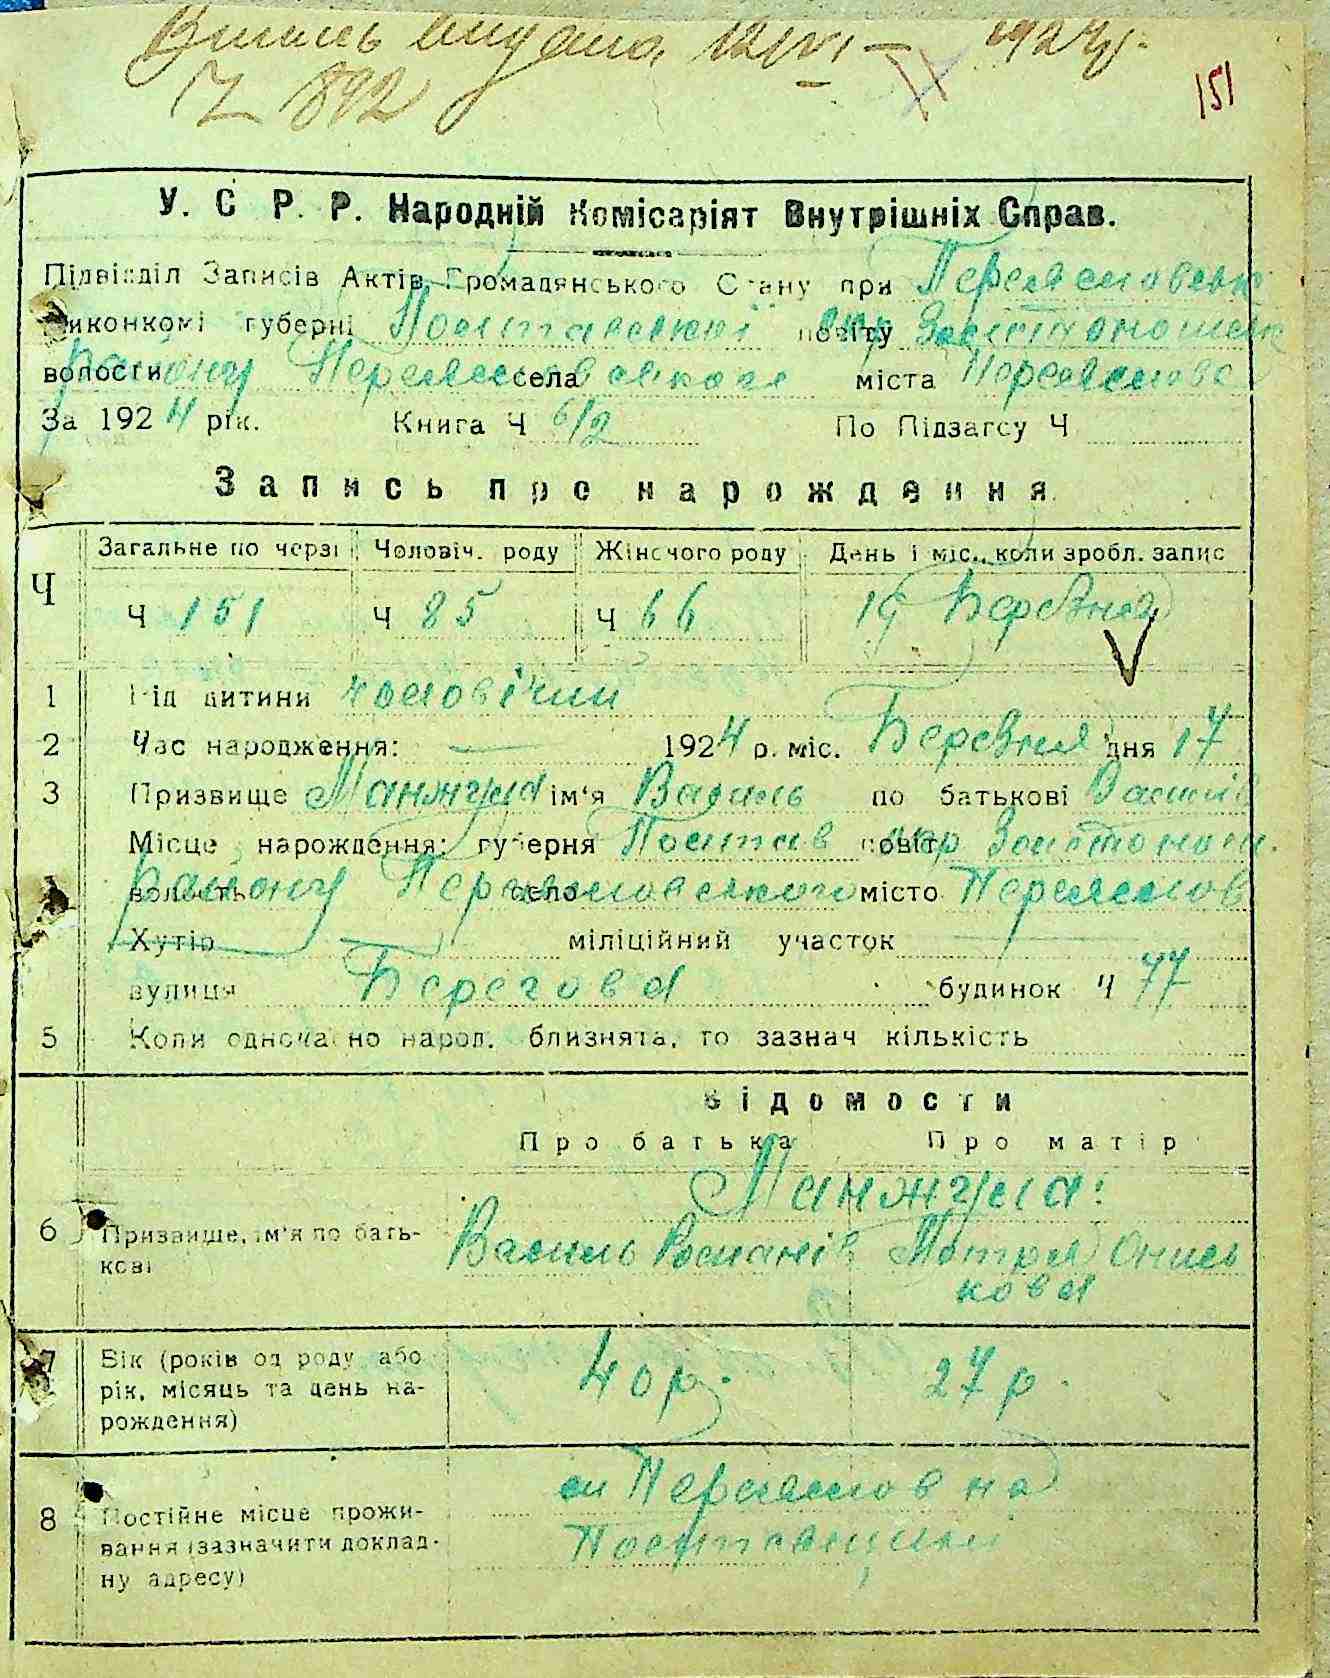 Випись видана 12/VI — 1924 р.
Ч 892
151
У. С Р. Р. Народній Комісаріят Внутрішніх Справ.
Підвідділ Записів Актів Громадянського Стану при Переяславськ
виконкомі губерні Полтавської повіту окр Золотоношськ
волости району Переяславського села міста Переяслова
За 1924 рік. Книга Ч 6/2 По Підзагсу Ч
Запись про нарождення
Ч Загальне по черзі Чоловіч. роду Жіночого роду День і міс., коли зробл. запис
Ч 151 Ч 85 Ч 66 19 Березня
1 Рід дитини чоловічий
2 Час народження: — 1924 р. міс. Березня дня 17
3 Призвище Манжула ім'я Василь по батькові Васил
Місце нарождення: губерня Полтав повіт окр Золотонош.
волость району Переяславського село місто Переяслов
Хутір міліційний участок
вулиця Берегова будинок Ч 77
5 Коли одночасно народ. близнята, то зазнач кількість
Відомости
Про батька Про матір
Манжула:
6 Призвище, ім'я по бать- Василь Романів Мотря Онись
кові кова
7 Вік (років од роду або 40 р. 27 р.
рік, місяць та день на-
рождення)
м Переяслов на
8 Постійне місце прожи- Полтавщині
вання (зазначити доклад-
ну адресу)